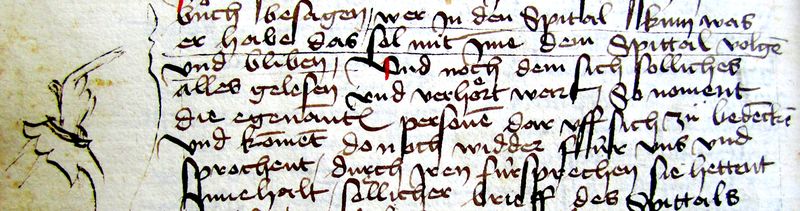 bůch besagen / wer in den Spital kum was
er habe das sol mit ime dem Spittal volgē
und bliben / Und noch dem sich solliches
alles gelesen und verhőrt wart So noment
die egenantē personē dar uff sich zů bedēckē
und kōment donoch widder für uns und
sprochent / durch iren fürsprechen sie hettent
Innehalt sollicher brieff des Spittals